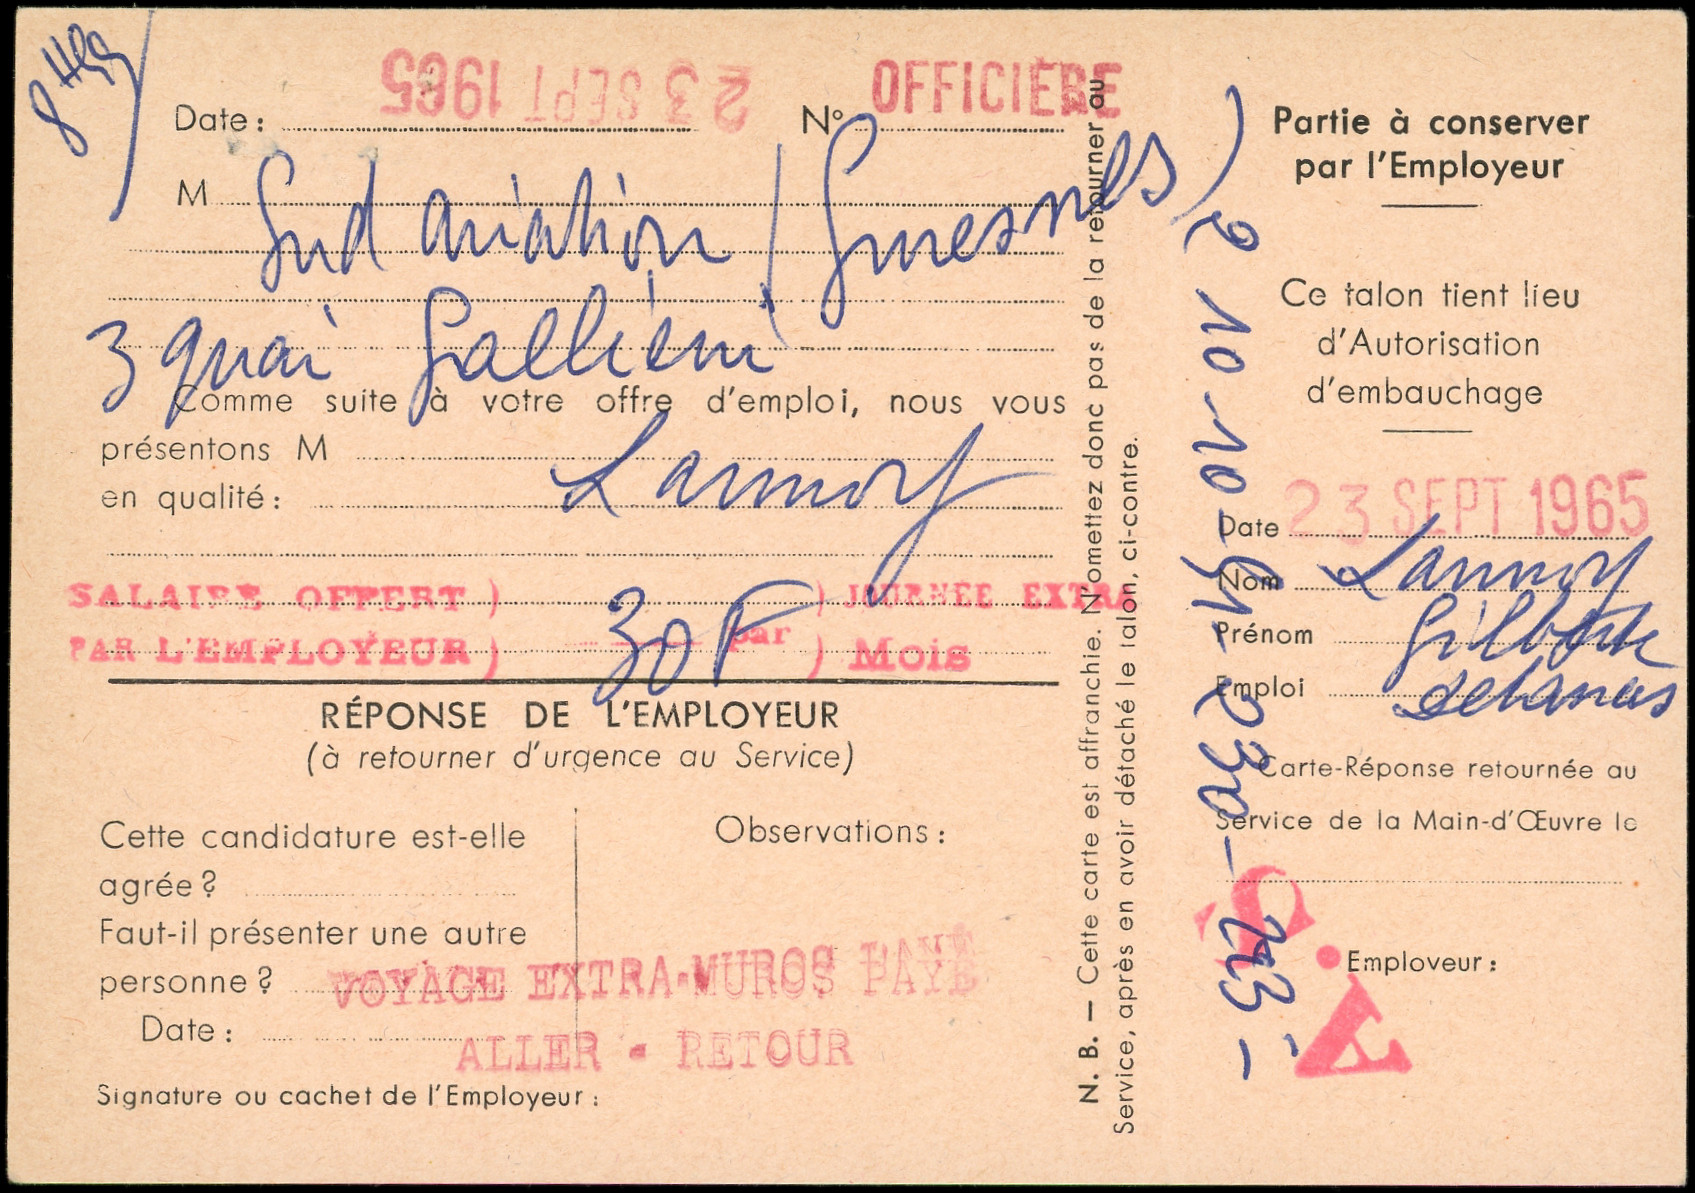 Date : 23 SEPT 1965 N° OFFICIÈRE
M Sud aviation (Suresnes)
3 quai Gallieni
Comme suite à votre offre d'emploi, nous vous
présentons M Lannoy
en qualité :
SALAIRE OFFERT ) ) JOURNÉE EXTRA
PAR L'EMPLOYEUR ) 30 F par ) Mois
RÉPONSE DE L'EMPLOYEUR
(à retourner d'urgence au Service)
Cette candidature est-elle
agrée ?
Faut-il présenter une autre
personne ?
Date :
Signature ou cachet de l'Employeur :
Observations :
VOYAGE EXTRA-MUROS PAYÉ
ALLER - RETOUR
N. B. — Cette carte est affranchie. N'omettez donc pas de la retourner au
Service, après en avoir détaché le talon, ci-contre.
Partie à conserver
par l'Employeur
Ce talon tient lieu
d'Autorisation
d'embauchage
Date 23 SEPT 1965
Nom Lannoy
Prénom Gilberte
Emploi
Carte-Réponse retournée au
Service de la Main-d'Œuvre le
Employeur :